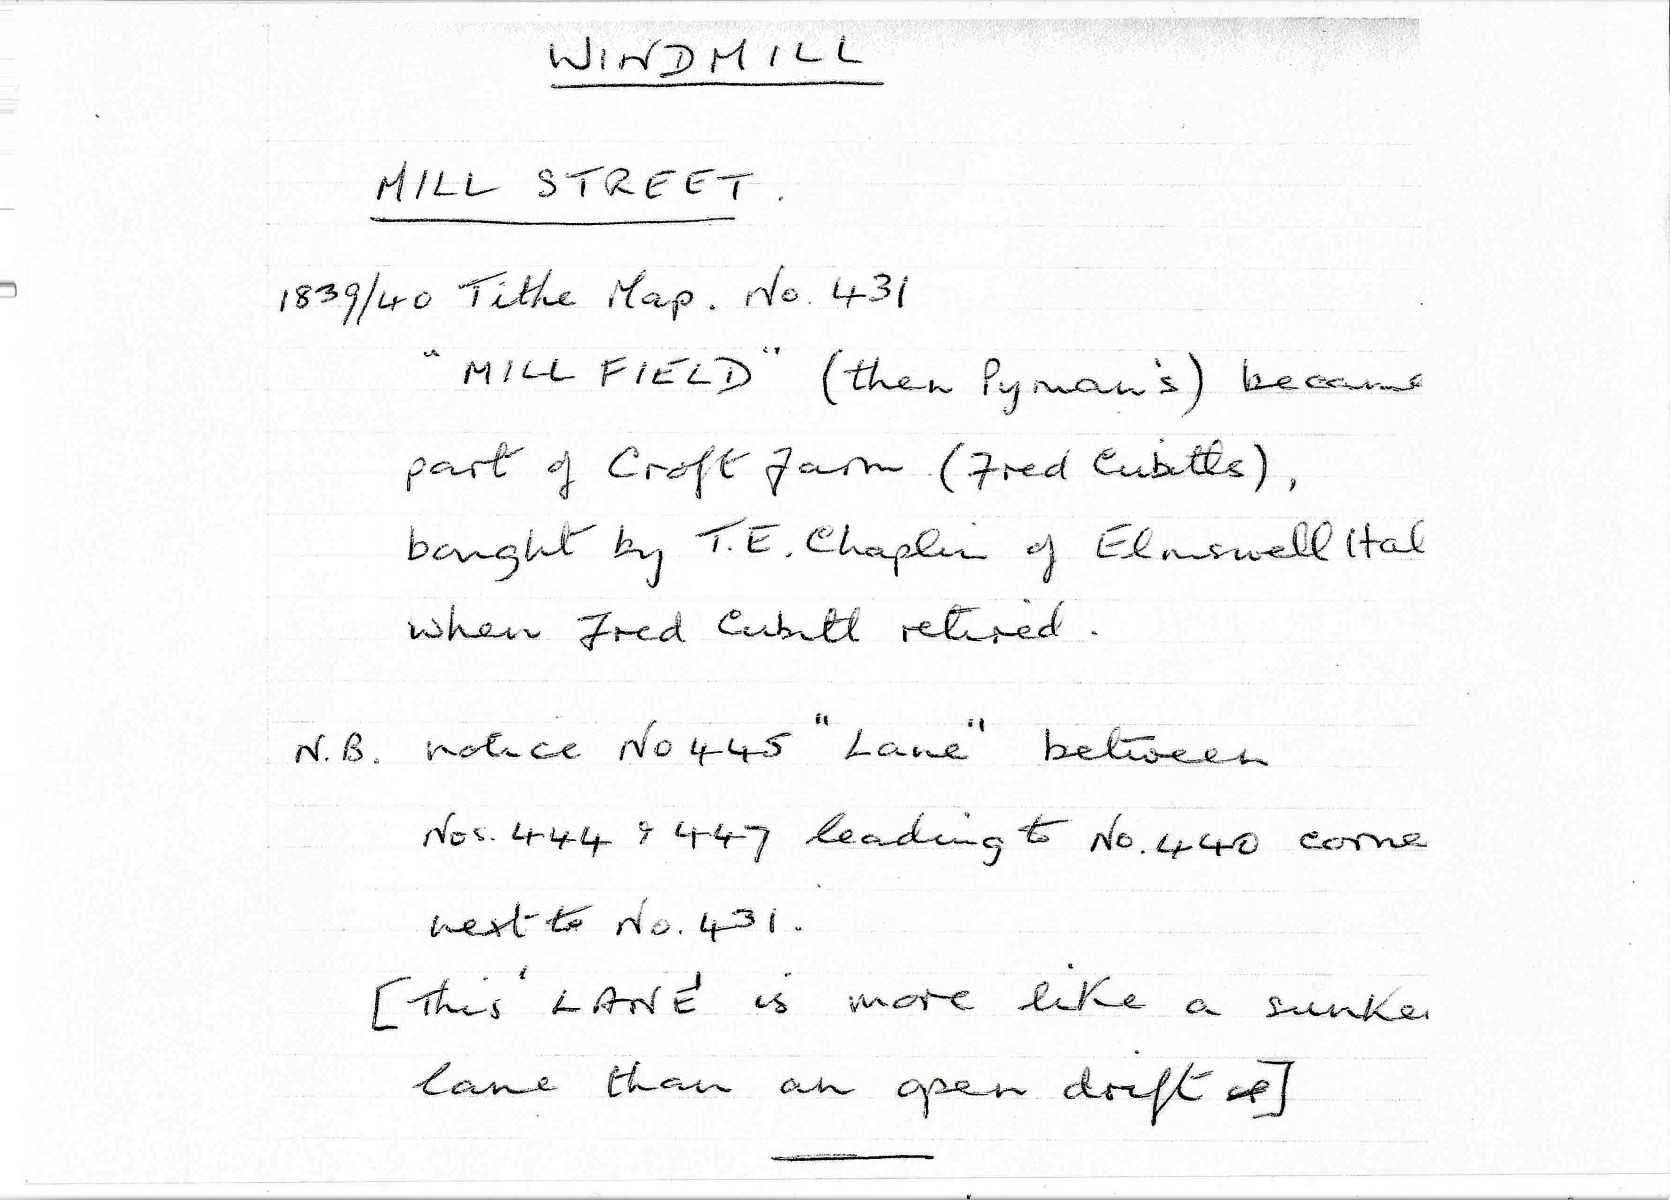 WINDMILL
MILL STREET.
1839/40 Tithe Map. No. 431
"MILL FIELD" (then Pyman's) became
part of Croft Farm (Fred Cubitts),
bought by T.E. Chaplin of Elmswell Hal
when Fred Cubitt retired.
N.B. notice No 445 "Lane" between
Nos. 444 & 447 leading to No. 440 corne
next to No. 431.
[This 'LANE' is more like a sunke
lane than an open drift]